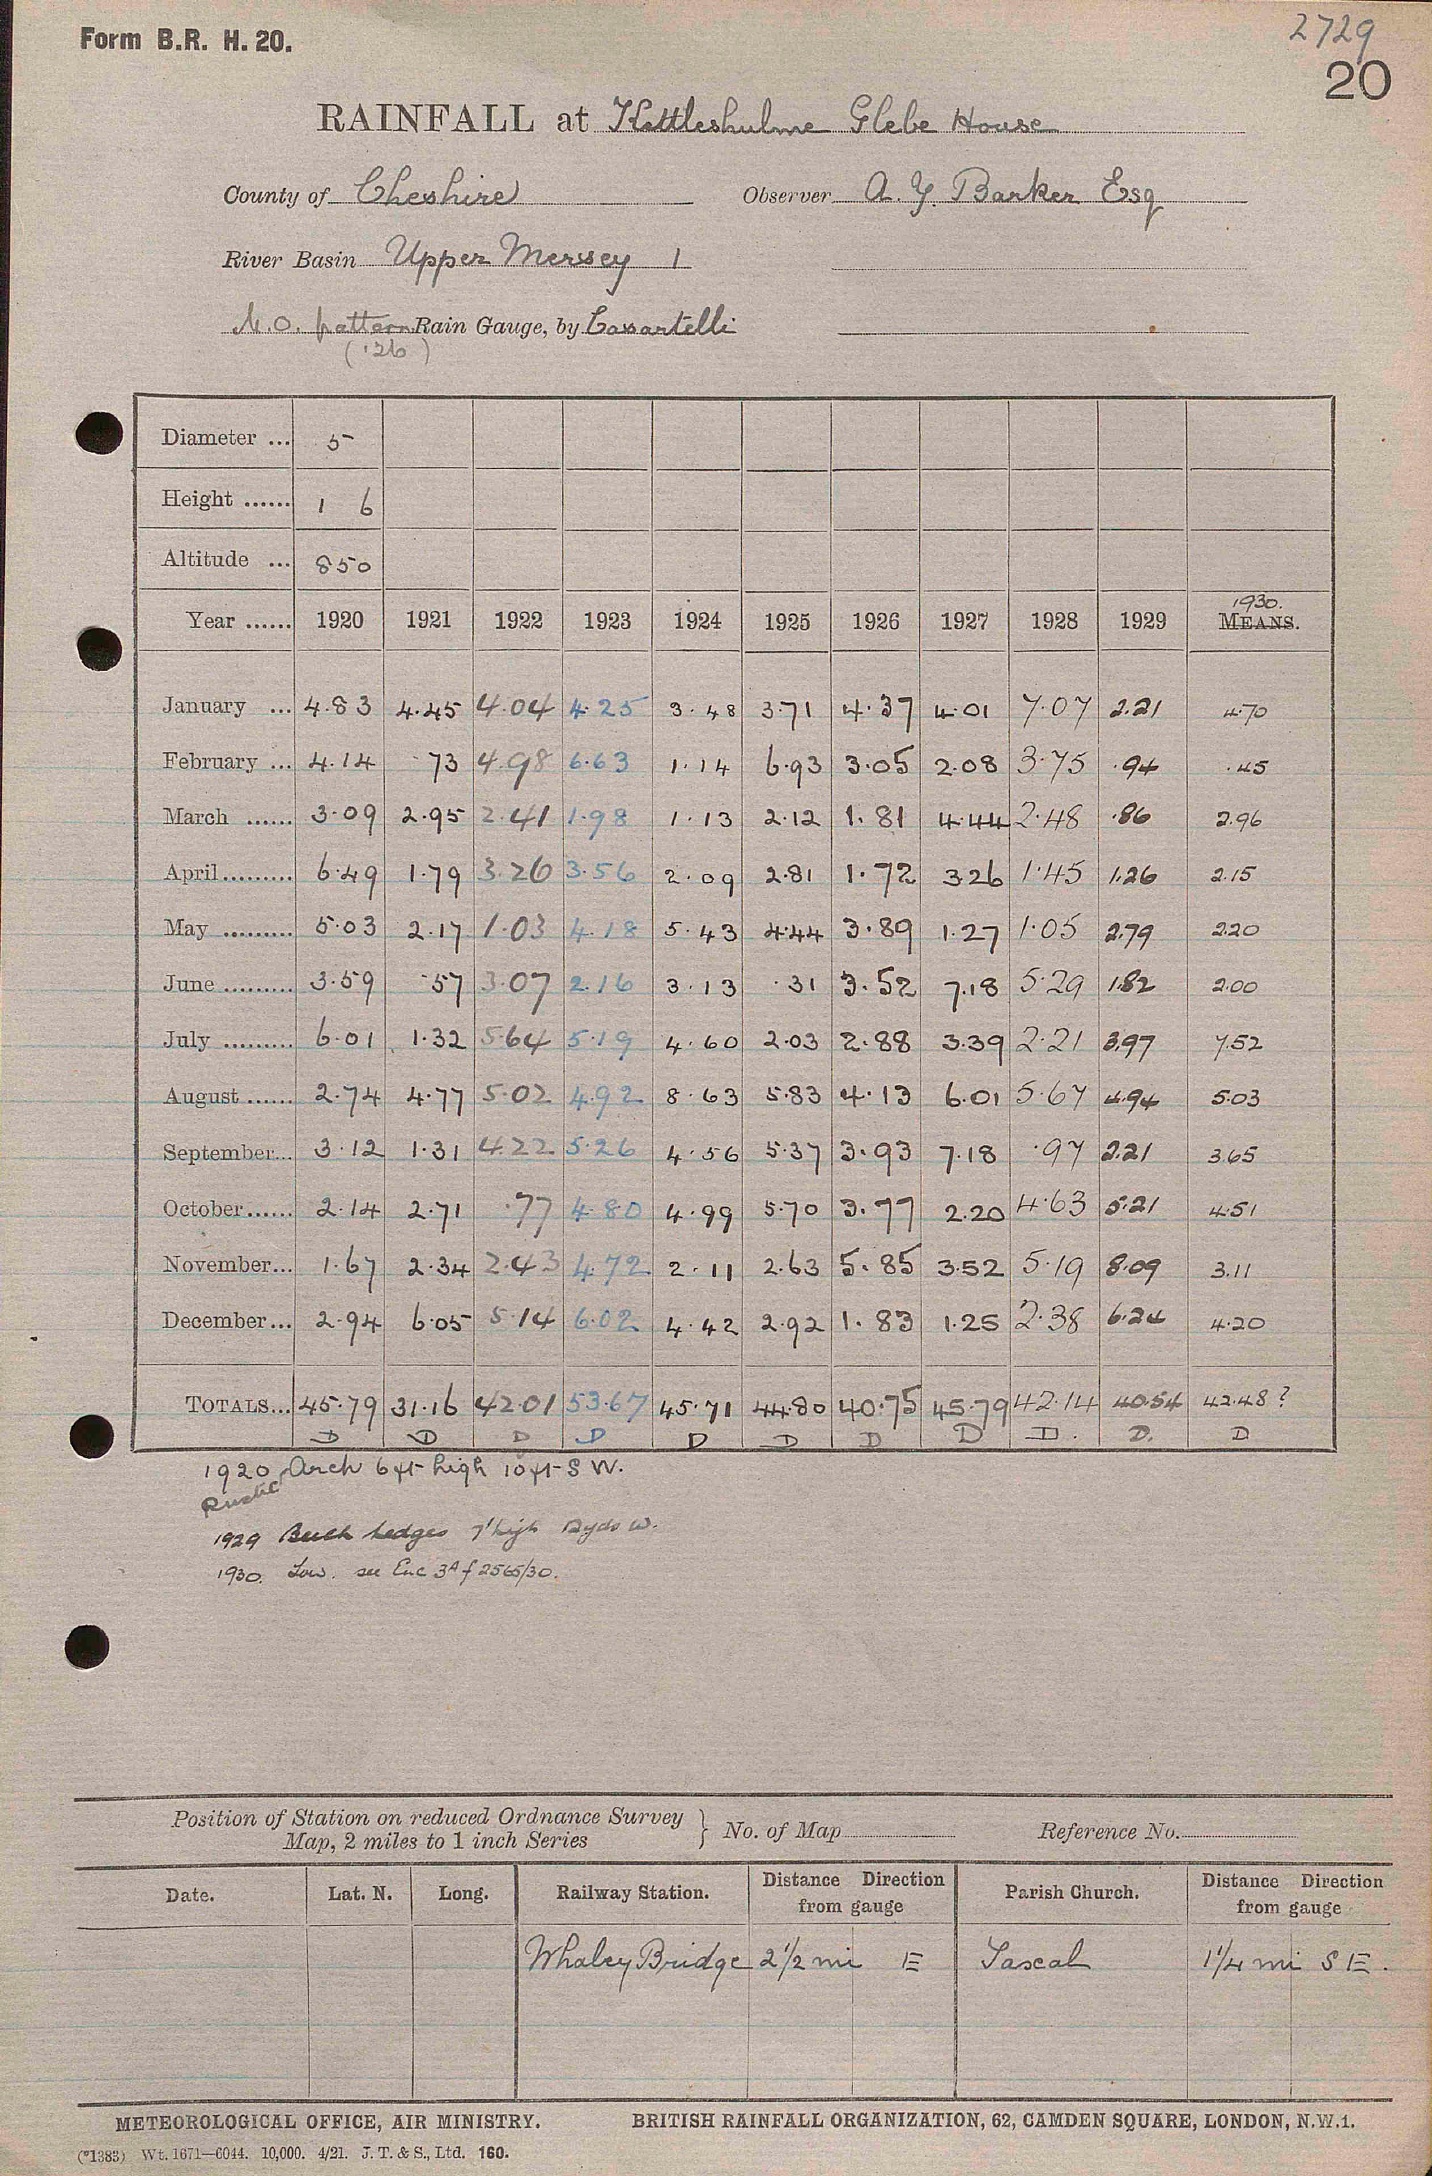 Form B.R. H. 20.
2729
20
RAINFALL at Kettleshulme Glebe House
County of Cheshire Observer A. Y. Barker Esq
River Basin Upper Mersey 1
M.O. pattern Rain Gauge, by Casartelli
('26)
Diameter ... 5
Height ...... 1 6
Altitude ... 850
1930.
Year ...... 1920 1921 1922 1923 1924 1925 1926 1927 1928 1929 MEANS.
January ... 4.83 4.45 4.04 4.25 3.48 3.71 4.37 4.01 7.07 2.21 4.70
February ... 4.14 .73 4.98 6.63 1.14 6.93 3.05 2.08 3.75 .94 .45
March ...... 3.09 2.95 2.41 1.98 1.13 2.12 1.81 4.44 2.48 .86 2.96
April......... 6.49 1.79 3.26 3.56 2.09 2.81 1.72 3.26 1.45 1.26 2.15
May ......... 5.03 2.17 1.03 4.18 5.43 4.44 3.89 1.27 1.05 2.79 2.20
June ......... 3.59 .57 3.07 2.16 3.13 .31 3.52 7.18 5.29 1.82 2.00
July ......... 6.01 1.32 5.64 5.19 4.60 2.03 2.88 3.39 2.21 3.97 7.52
August ...... 2.74 4.77 5.02 4.92 8.63 5.83 4.13 6.01 5.67 4.94 5.03
September... 3.12 1.31 4.22 5.26 4.56 5.37 3.93 7.18 .97 2.21 3.65
October...... 2.14 2.71 .77 4.80 4.99 5.70 3.77 2.20 4.63 5.21 4.51
November... 1.67 2.34 2.43 4.72 2.11 2.63 5.85 3.52 5.19 8.09 3.11
December... 2.94 6.05 5.14 6.02 4.42 2.92 1.83 1.25 2.38 6.24 4.20
TOTALS... 45.79 31.16 42.01 53.67 45.71 44.80 40.75 45.79 42.14 40.54 42.48 ?
D D D D D D D D D. D. D
1920 Arch 6 ft high 10 ft S W.
Rustic
1929 Beech hedges 7' high 2yds W.
1930. Low. see Enc 3A f 2565/30.
Position of Station on reduced Ordnance Survey
Map, 2 miles to 1 inch Series } No. of Map Reference No.
Date. Lat. N. Long. Railway Station. Distance Direction from gauge Parish Church. Distance Direction from gauge
Whaley Bridge 2 1/2 mi E Taxal 1 1/4 mi S E.
METEOROLOGICAL OFFICE, AIR MINISTRY. BRITISH RAINFALL ORGANIZATION, 62, CAMDEN SQUARE, LONDON, N.W.1.
(*1383) Wt. 1671—6044. 10,000. 4/21. J. T. & S., Ltd. 160.